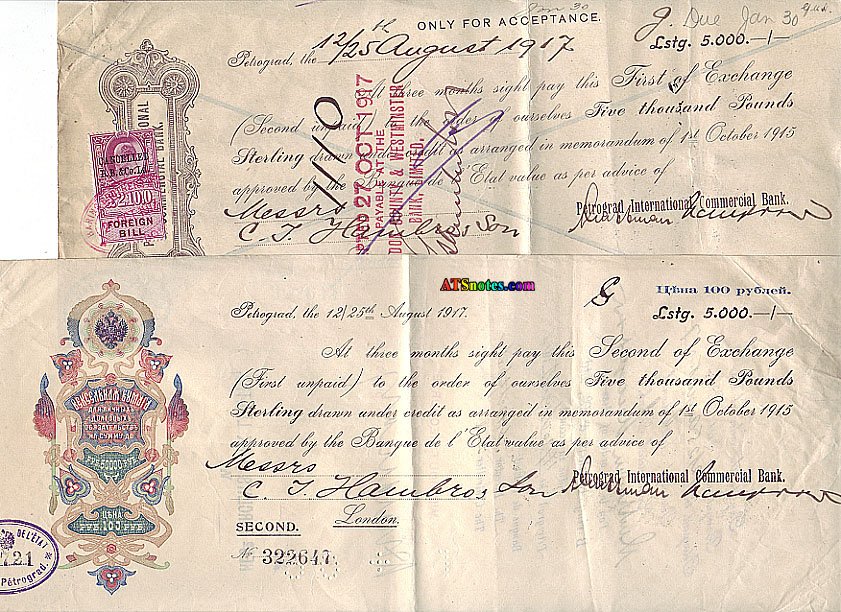 ONLY FOR ACCEPTANCE.
Due Jan 30
Lstg. 5.000.—/—
Petrograd, the 12/25th August 1917
At three months sight pay this First of Exchange
(Second unpaid) to the order of ourselves Five thousand Pounds
Sterling drawn under credit as arranged in memorandum of 1st October 1915
approved by the Banque de l'Etat value as per advice of
Petrograd International Commercial Bank.
Messrs
C. J. Hambro & Son
1110
27 OCT 1917
PAYABLE AT THE
COUNTY & WESTMINSTER
BANK, LIMITED.
CANCELLED
£100
FOREIGN
BILL
ATSnotes.com
Цѣна 100 рублей.
Lstg. 5.000.—/—
Petrograd, the 12/25th August 1917.
At three months sight pay this Second of Exchange
(First unpaid) to the order of ourselves Five thousand Pounds
Sterling drawn under credit as arranged in memorandum of 1st October 1915
approved by the Banque de l'Etat value as per advice of
Messrs
Petrograd International Commercial Bank.
C. J. Hambro & Son
London.
SECOND.
№ 322647
ВЕКСЕЛЬНАЯ БУМАГА
ДЛЯ ЛИЧНЫХ
ДОЛГОВЫХ
ОБЯЗАТЕЛЬСТВЪ
НА СУММУ ДО
РУБ. 50000 РУБ.
ЦѢНА
РУБ. 100 РУБ.
DE L'ÉTAT
721
Pétrograd.